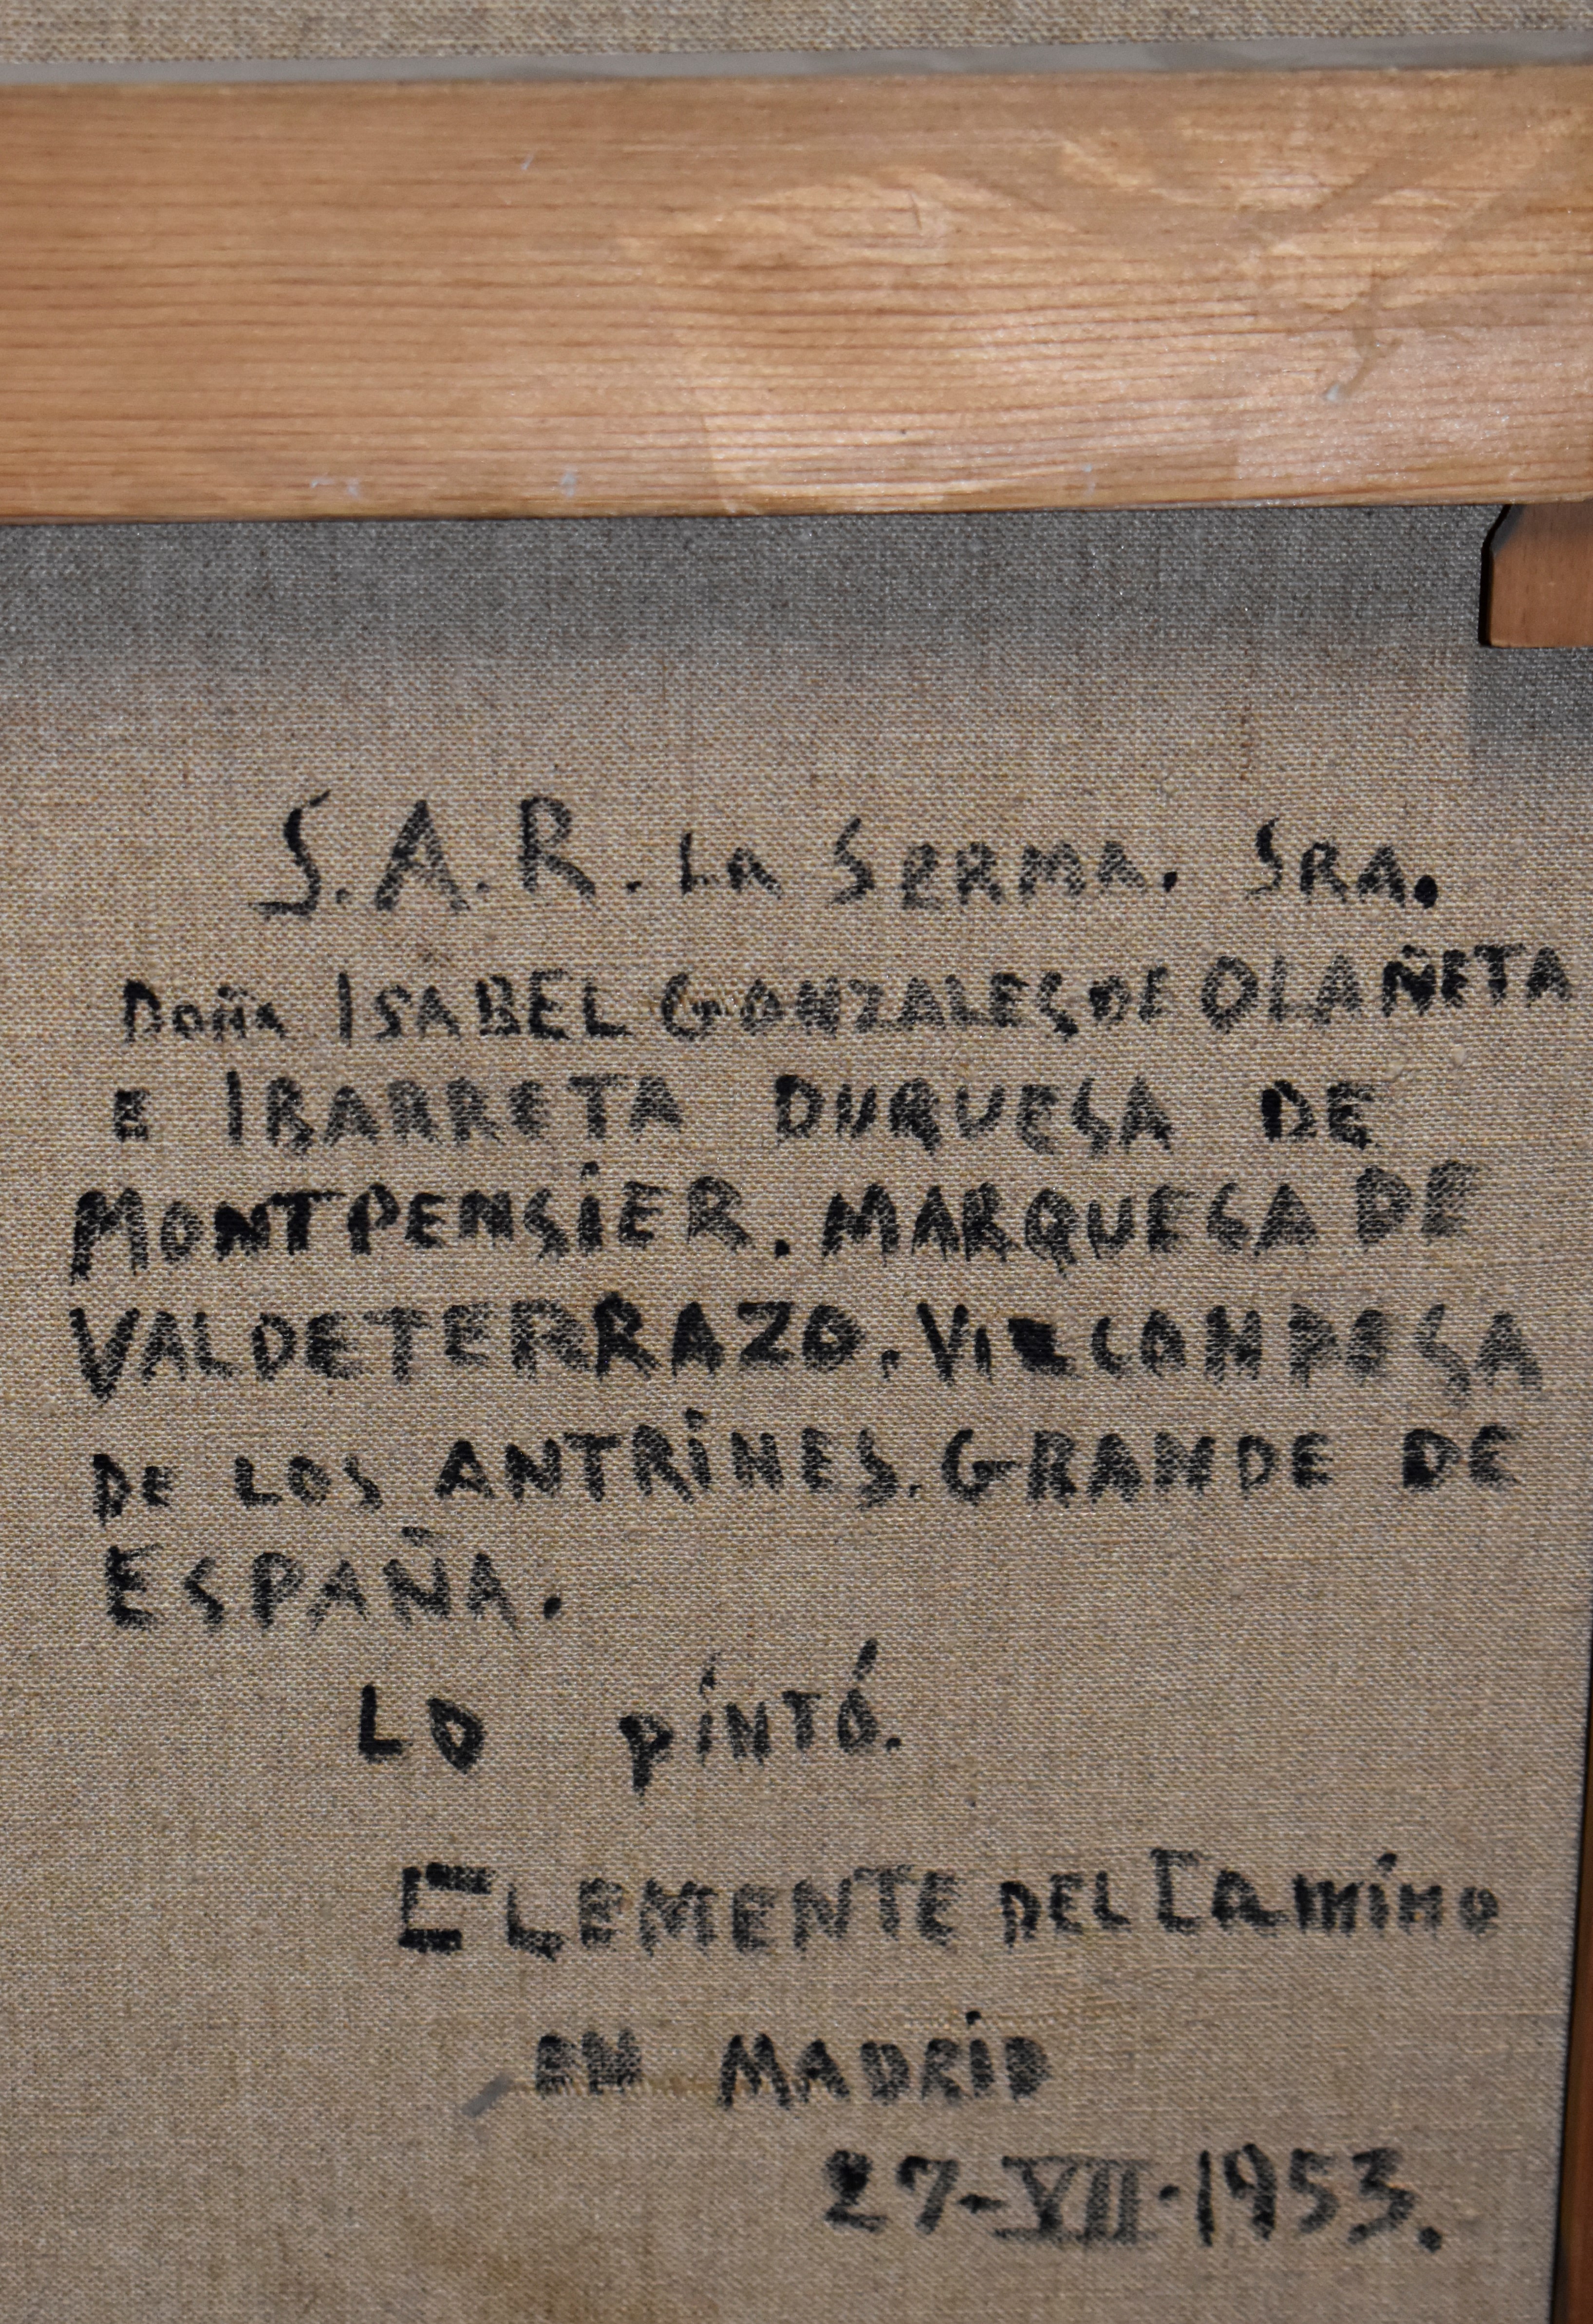 S.A.R. La SERMA. SRA.
Doña ISABEL GONZALES DE OLAÑETA
E IBARRETA DUQUESA DE
MONTPENSiER. MARQUESA DE
VALDETERRAZO. VIZCONDESA
DE LOS ANTRiNES. GRANDE DE
ESPAÑA.
LO PiNTÓ.
CLEMENTE DEL Camino
EN MADRiD
27-VII-1953.